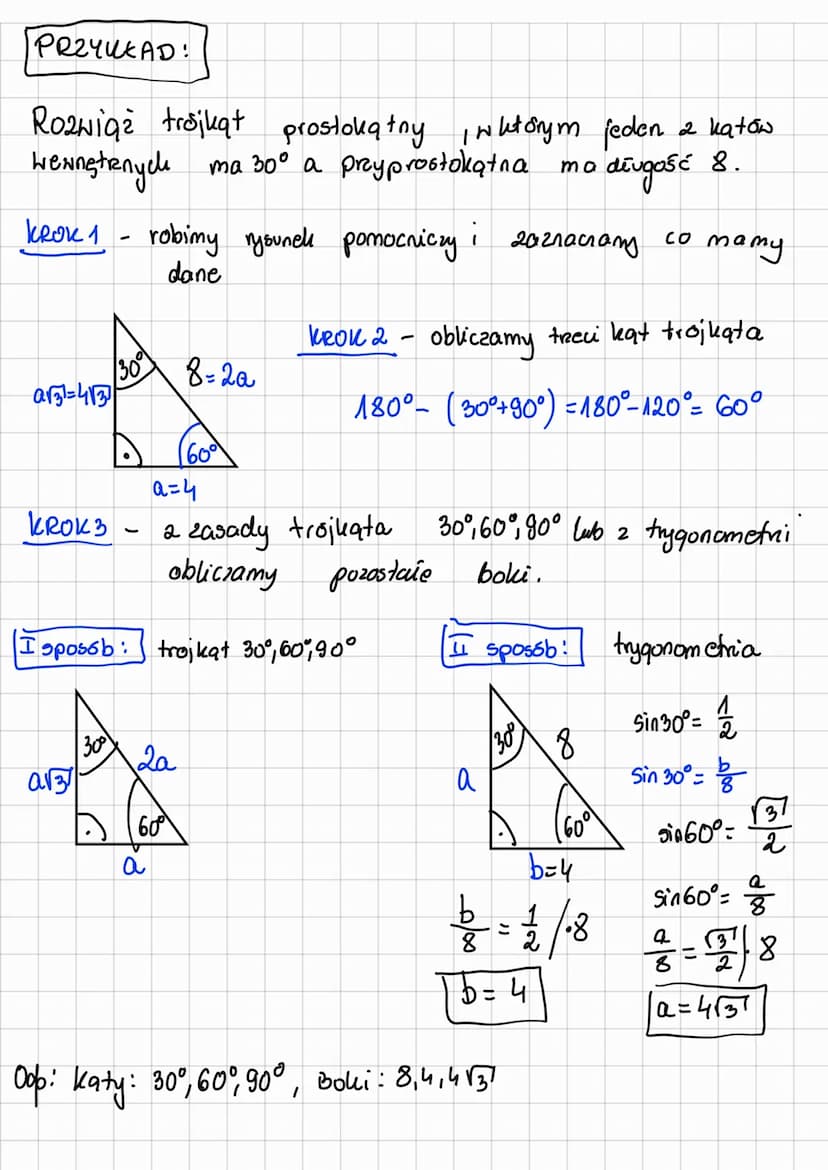 PRZYKŁAD:
Rozwiąż trójkąt prostokątny, w którym jeden z kątów
wewnętrznych ma 30° a przyprostokątna ma długość 8.
KROK 1 - robimy rysunek pomocniczy i zaznaczamy co mamy
dane
30°
8=2a
a√3=4√3
60°
a=4
KROK 2 - obliczamy trzeci kąt trójkąta
180°- (30°+90°) =180°-120°= 60°
KROK 3 - z zasady trójkąta 30°,60°,90° lub z trygonometrii
obliczamy pozostałe boki.
I sposób: trójkąt 30°,60°,90°
30°
2a
a√3
60°
a
II sposób: trygonometria
30°
8
a
60°
b=4
sin30°= 1/2
sin30°= b/8
sin60°= √3/2
sin60°= a/8
b/8 = 1/2 /·8
b= 4
a/8 = √3/2 |· 8
a=4√3
Odp: Kąty: 30°,60°,90°, Boki: 8,4,4√3